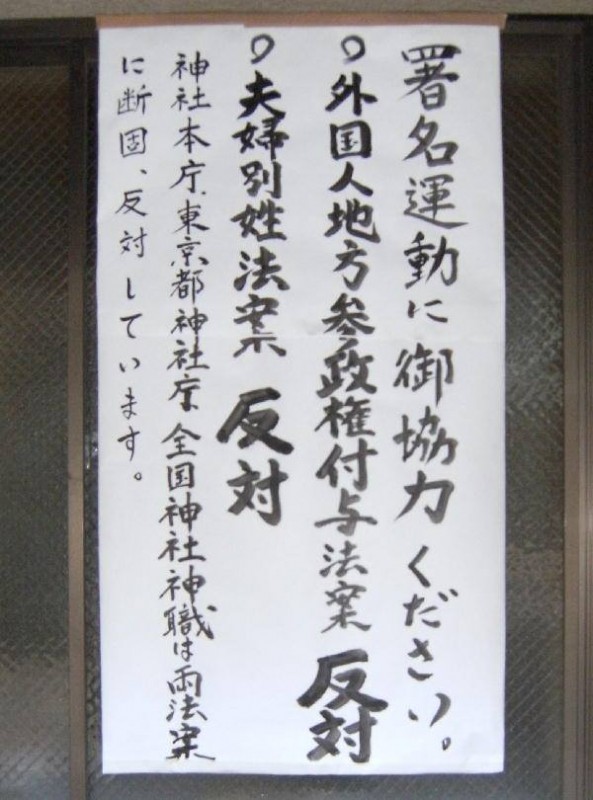 署名運動に御協力ください。
○外国人地方参政権付与法案 反対
○夫婦別姓法案 反対
神社本庁、東京都神社庁、全国神社神職は両法案
に断固、反対しています。